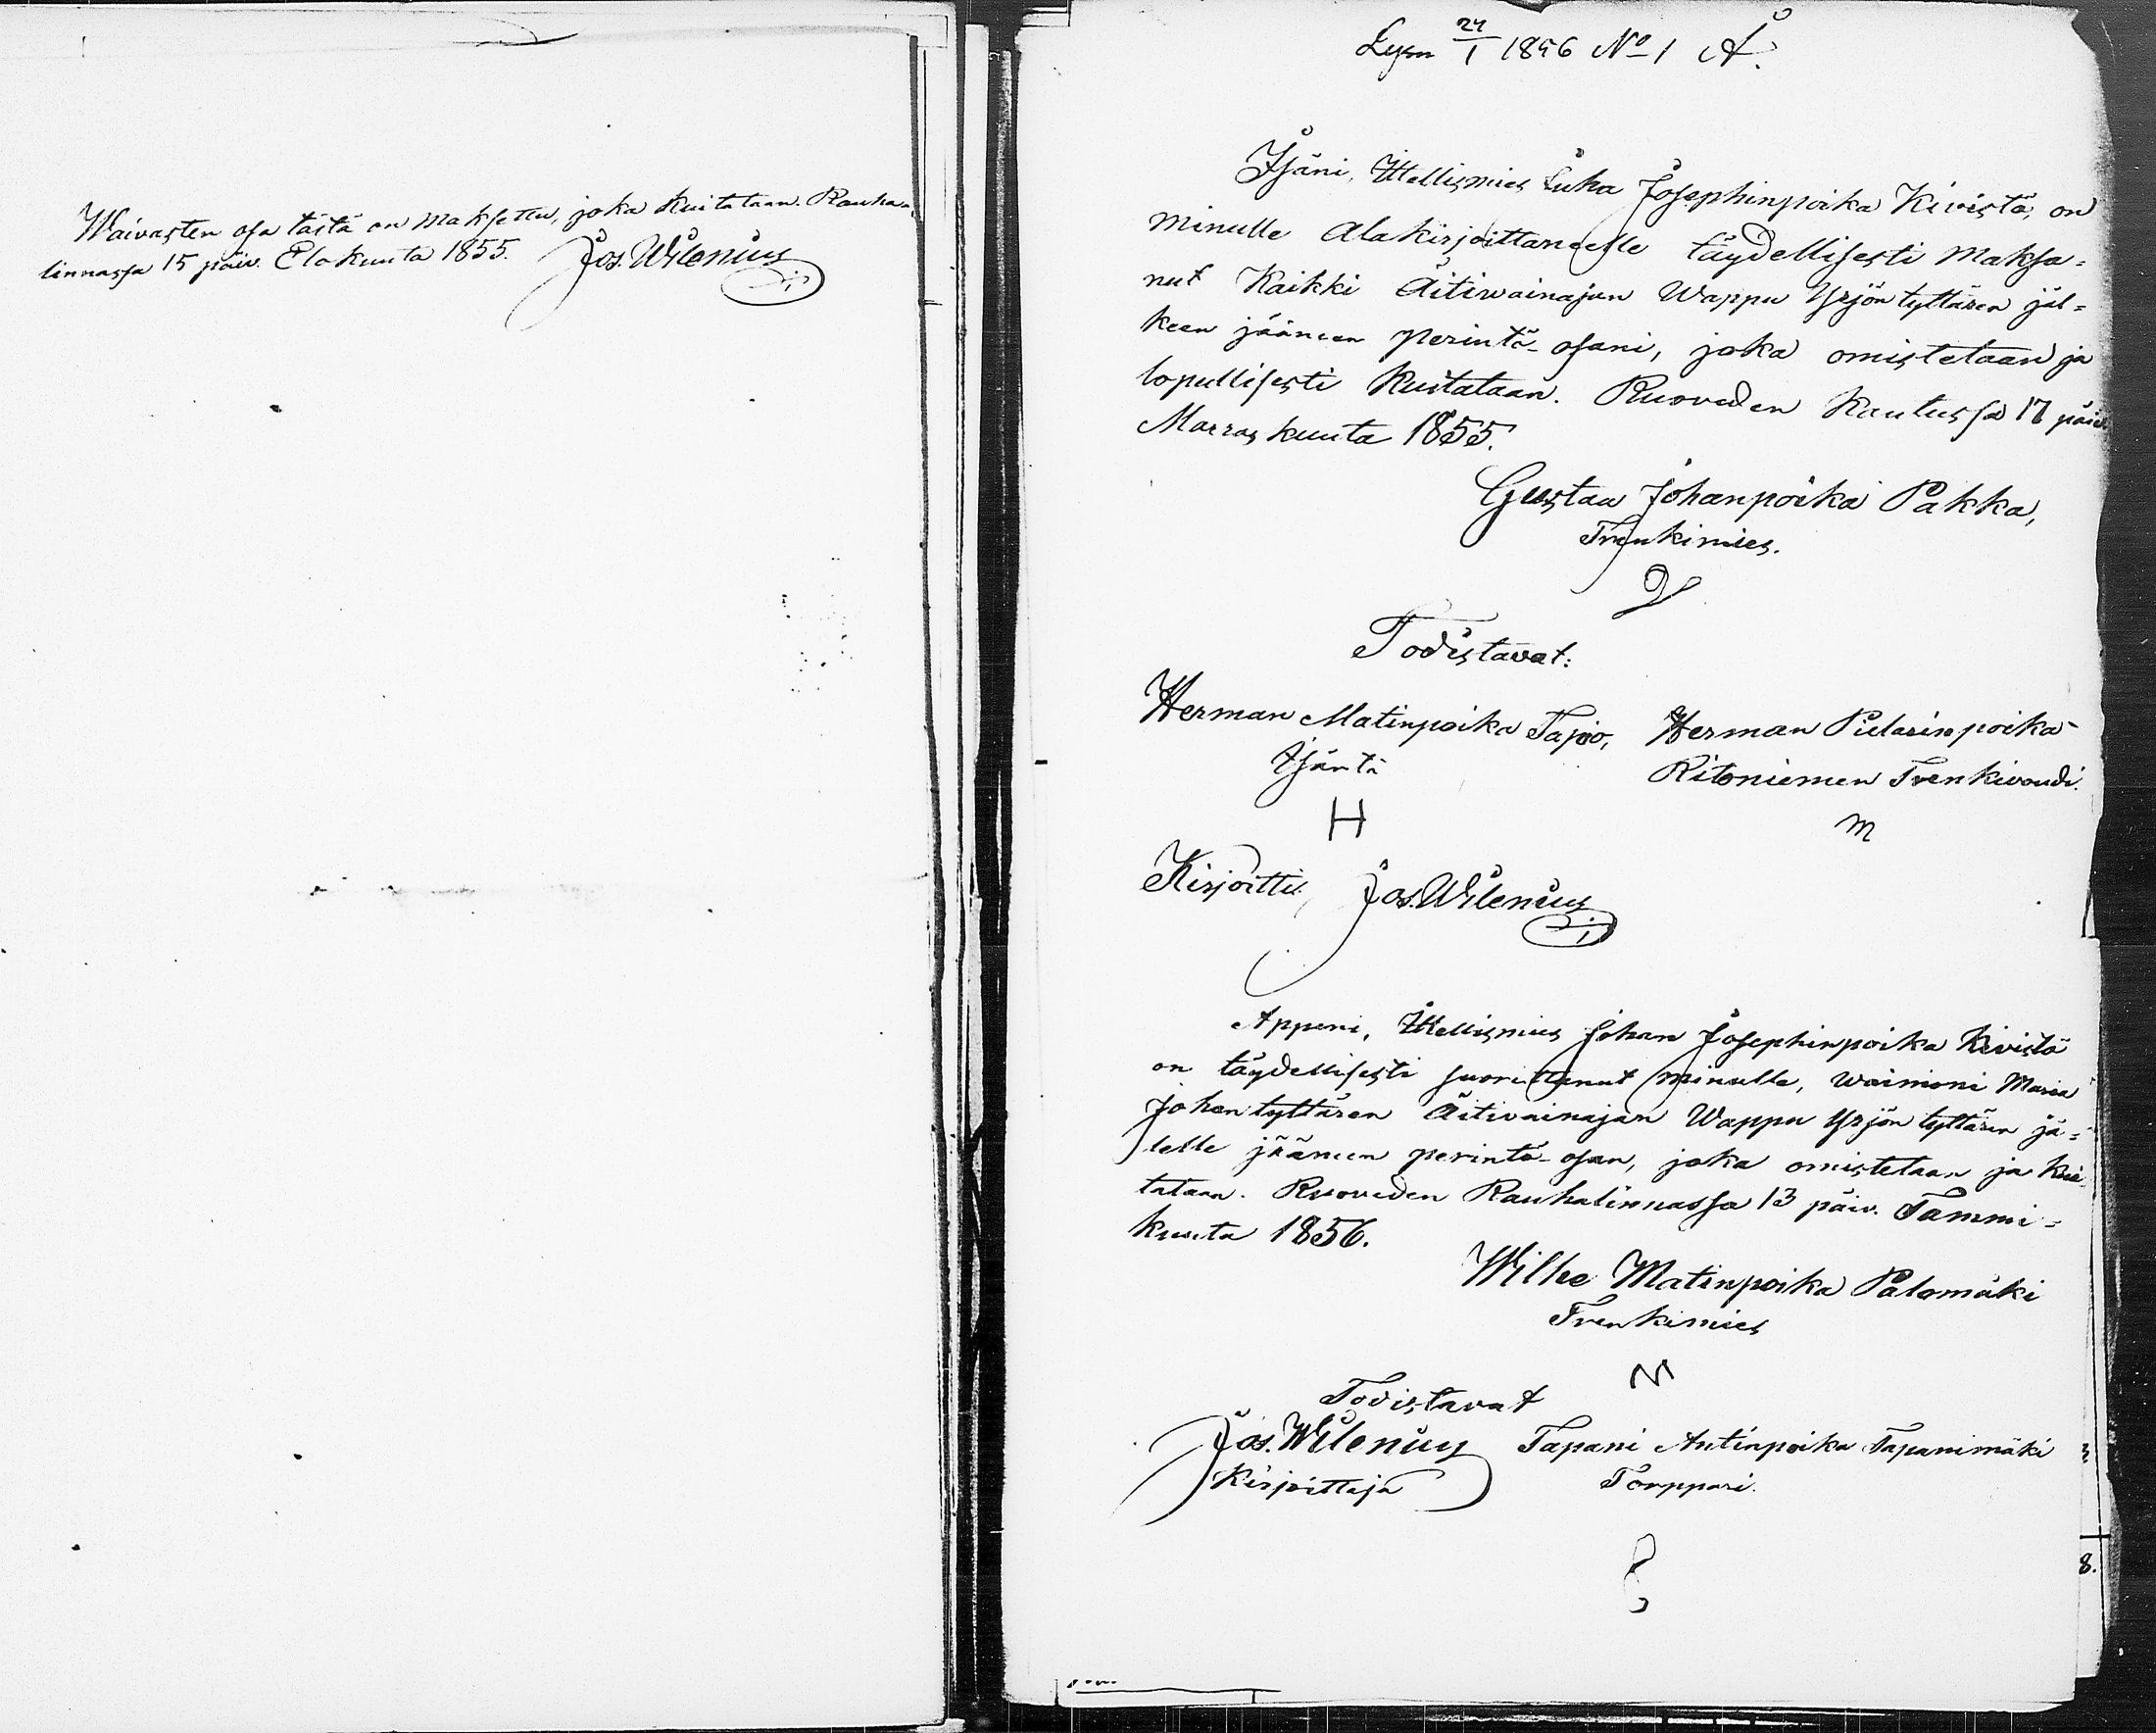 Waivasten osa tästä on maksettu, joka kuitataan. Rauha-
linnassa 15 päiv. Elokuuta 1855. Jos. Wilenius
24/1 1856 No 1 Å.
Isäni, Itellismies Juha Josephinpoika Kivistö, on
minulle Alakirjoittaneelle täydellisesti maksa=
nut Kaikki Äitiwainajan Wappu Yrjön tyttären jäl=
keen jääneen perintö-osani, joka omistetaan ja
lopullisesti Kuitataan. Ruoveden Kautussa 17 päiv.
Marraskuuta 1855.
Gustaa Johanpoika Pakka,
Trenkimies.
Todistavat:
Herman Matinpoika Tapio, Herman Pietarinpoika
Isäntä Ritoniemen Trenkivouti.
H m
Kirjoitti, Jos. Wilenius
Appeni, Itellismies Johan Josephinpoika Kivistö
on täydellisesti suorittanut minulle, waimoni Maria
Johantyttären Äitivainajan Wappu Yrjön tyttären jä=
lelle jääneen perintö-osan, joka omistetaan ja kui-
tataan. Ruoveden Rauhalinnassa 13 päiv. Tammi=
kuuta 1856.
Wilhe Matinpoika Palomäki
Trenkimies
Todistavat
Jos. Wilenius Tapani Antinpoika Tapanimäki
Kirjoittaja Torppari.
8.